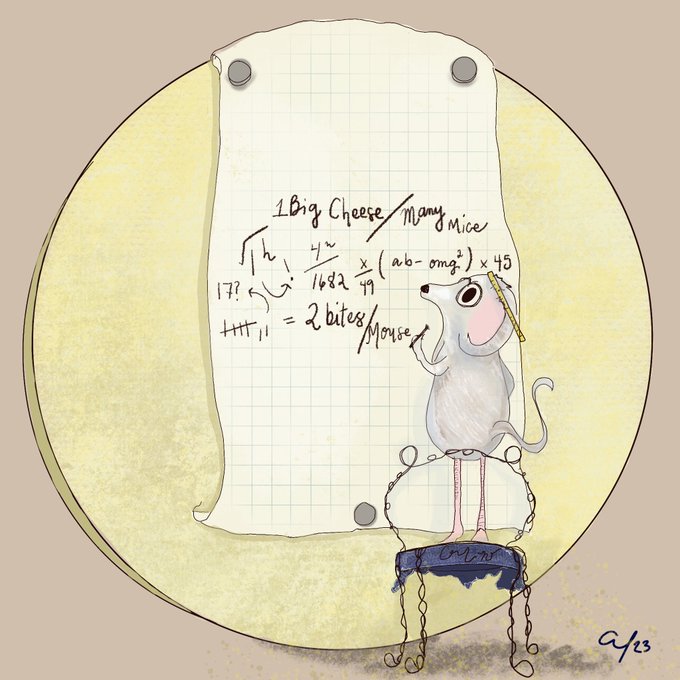 1 Big Cheese/Many Mice
√1h! 4ⁿ/1682 x/49 (ab-omg²) x 45
17?
= 2 bites/Mouse
23